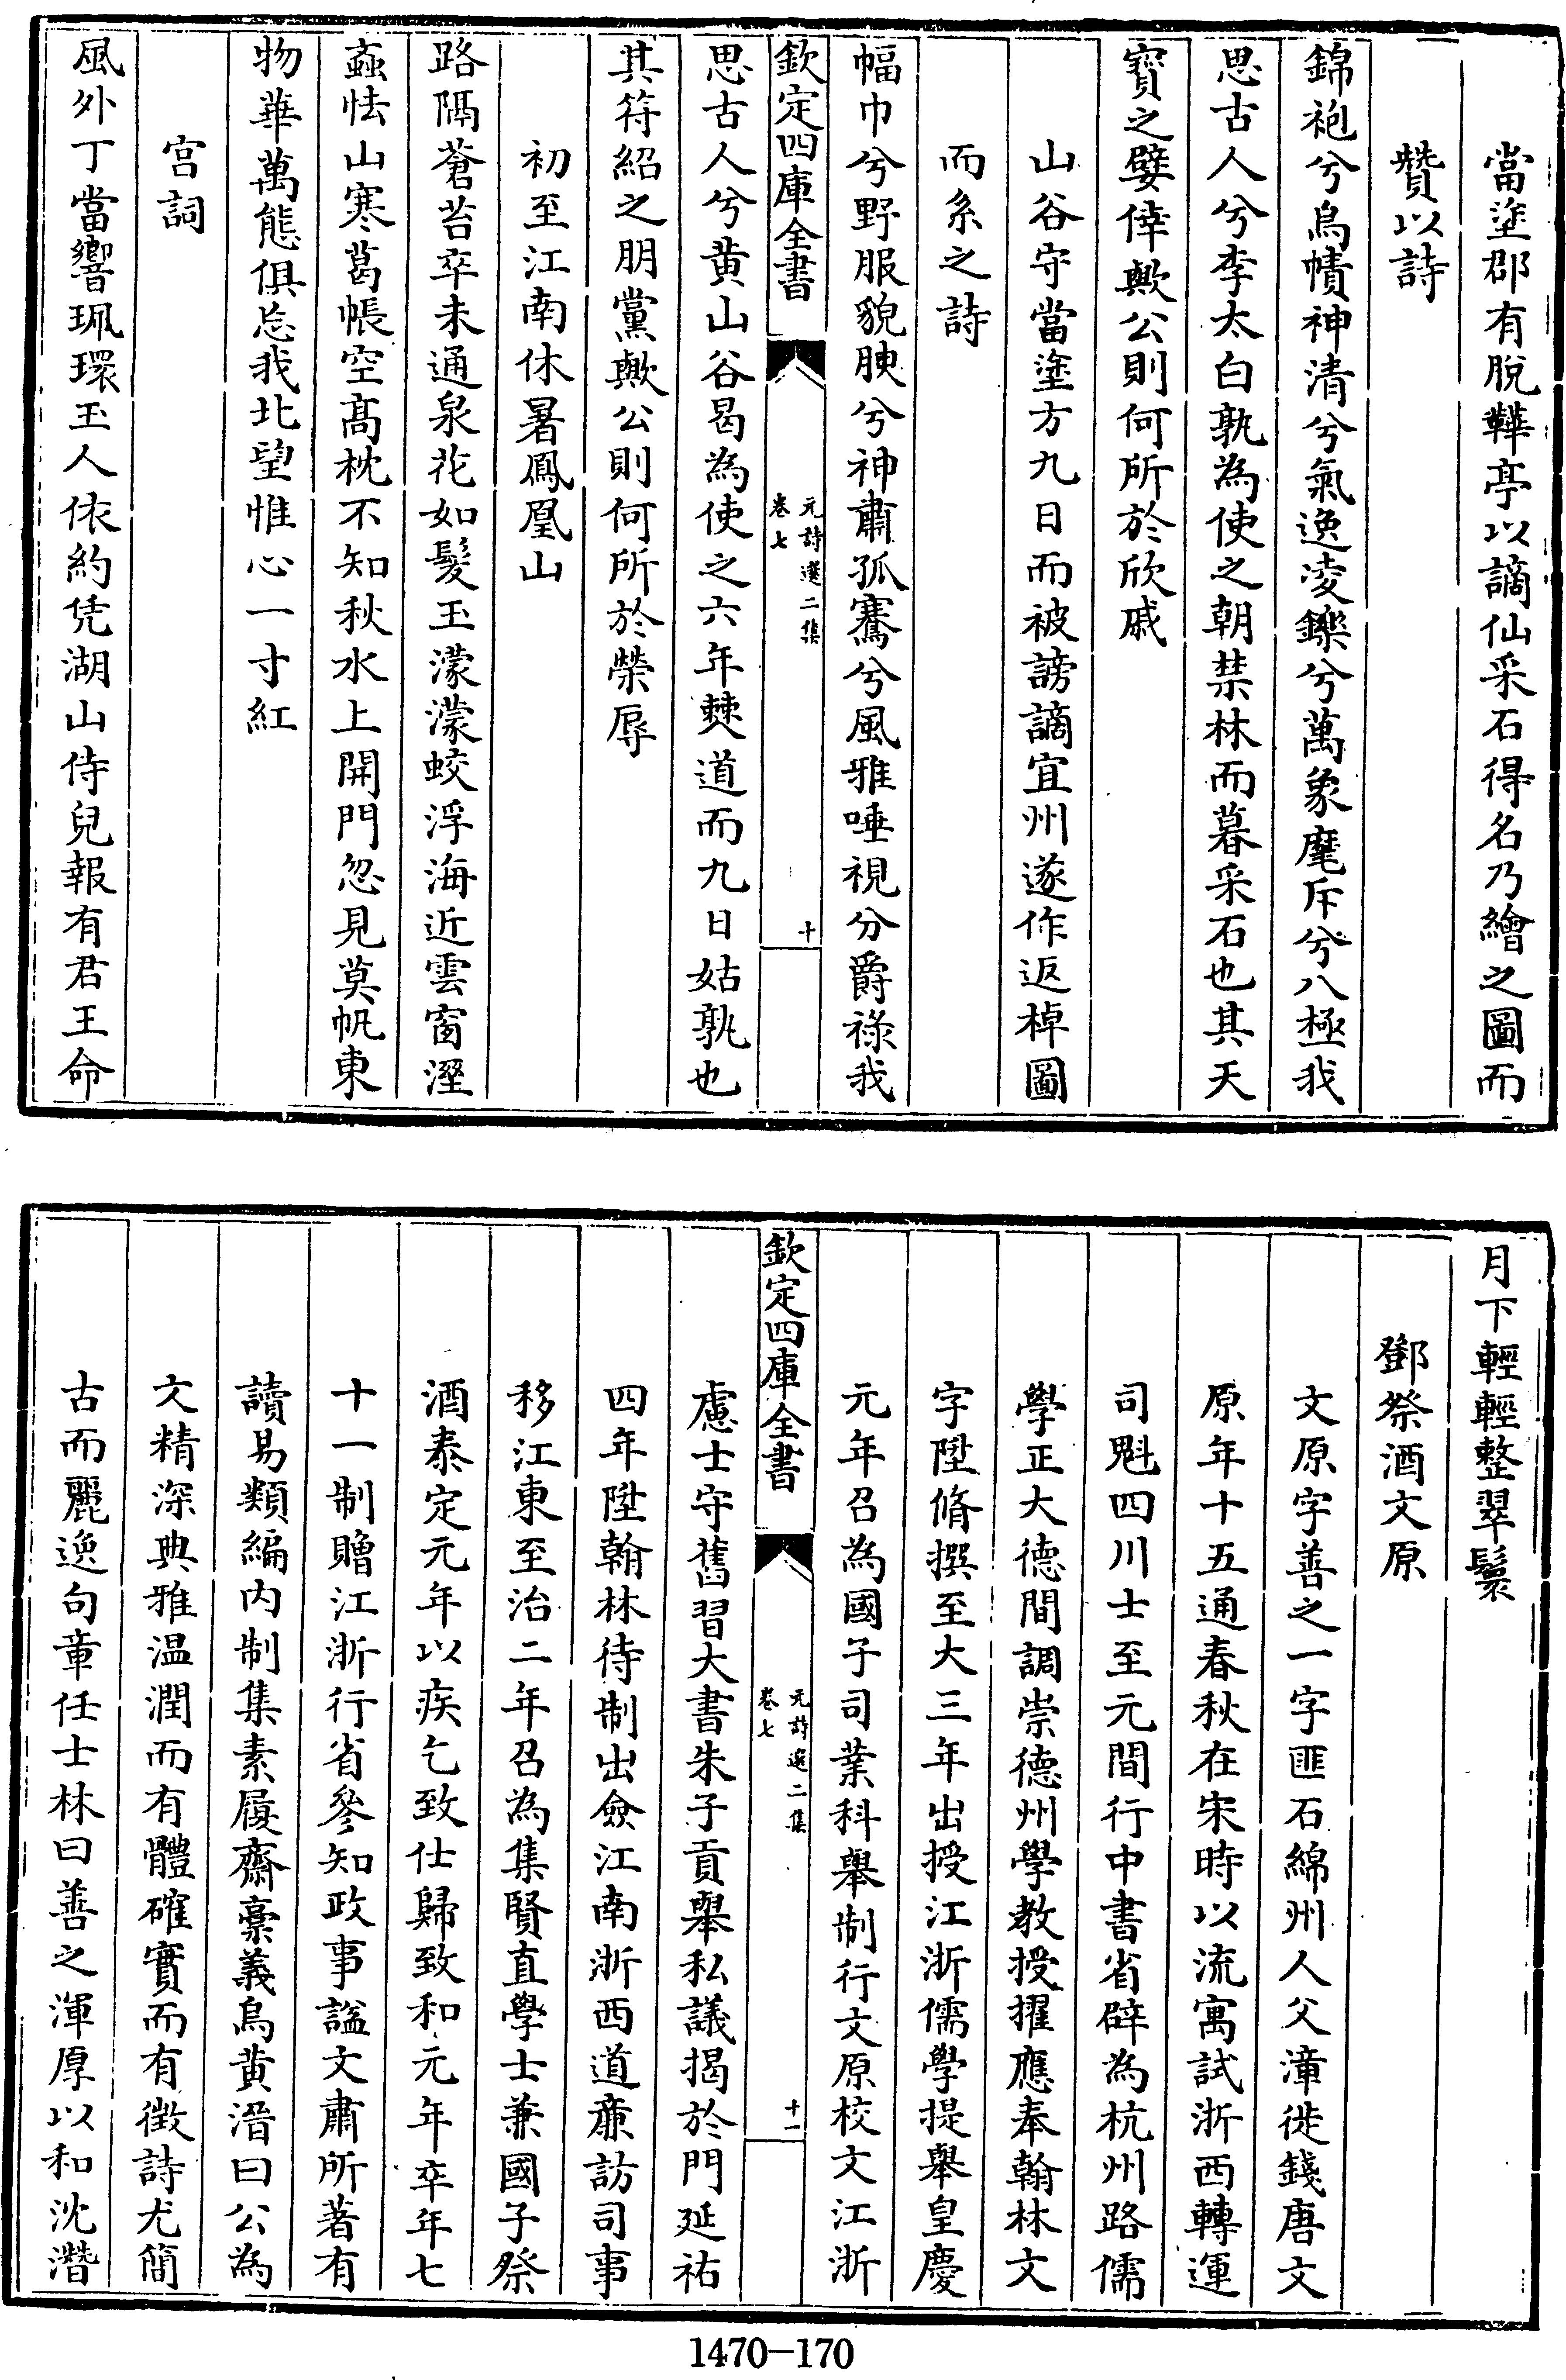 當塗郡有脫鞾亭以謫仙采石得名乃繪之圖而
贊以詩
錦袍兮烏幘神清兮氣逸凌鑠兮萬象麾斥兮八極我
思古人兮李太白孰為使之朝禁林而暮采石也其天
寳之嬖倖歟公則何所於欣戚
山谷守當塗方九日而被謗謫宜州遂作返棹圖
而系之詩
幅巾兮野服貌腴兮神肅孤騫兮風雅唾視兮爵祿我
欽定四庫全書
元詩選二集
卷七
十
思古人兮黄山谷曷為使之六年僰道而九日姑孰也
其符紹之朋黨歟公則何所於榮辱
初至江南休暑鳳凰山
路隔蒼苔卒未通泉花如髮玉濛濛蛟浮海近雲窗溼
蝱怯山寒葛帳空髙枕不知秋水上開門忽見莫帆東
物華萬態俱忘我北望惟心一寸紅
宫詞
風外丁當響珮環玉人依約凭湖山侍兒報有君王命
月下輕輕整翠鬟
鄧祭酒文原
文原字善之一字匪石綿州人父漳徙錢唐文
原年十五通春秋在宋時以流寓試浙西轉運
司魁四川士至元間行中書省辟為杭州路儒
學正大德間調崇德州學教授擢應奉翰林文
字陞脩撰至大三年出授江浙儒學提舉皇慶
元年召為國子司業科舉制行文原校文江浙
欽定四庫全書
元詩選二集
卷七
十一
慮士守舊習大書朱子貢舉私議揭於門延祐
四年陞翰林待制出僉江南浙西道亷訪司事
移江東至治二年召為集賢直學士兼國子祭
酒泰定元年以疾乞致仕歸致和元年卒年七
十一制贈江浙行省參知政事諡文肅所著有
讀易類編内制集素履齋藁義烏黄溍曰公為
文精深典雅温潤而有體確實而有徵詩尤簡
古而麗逸句章任士林曰善之渾厚以和沈潛
1470-170